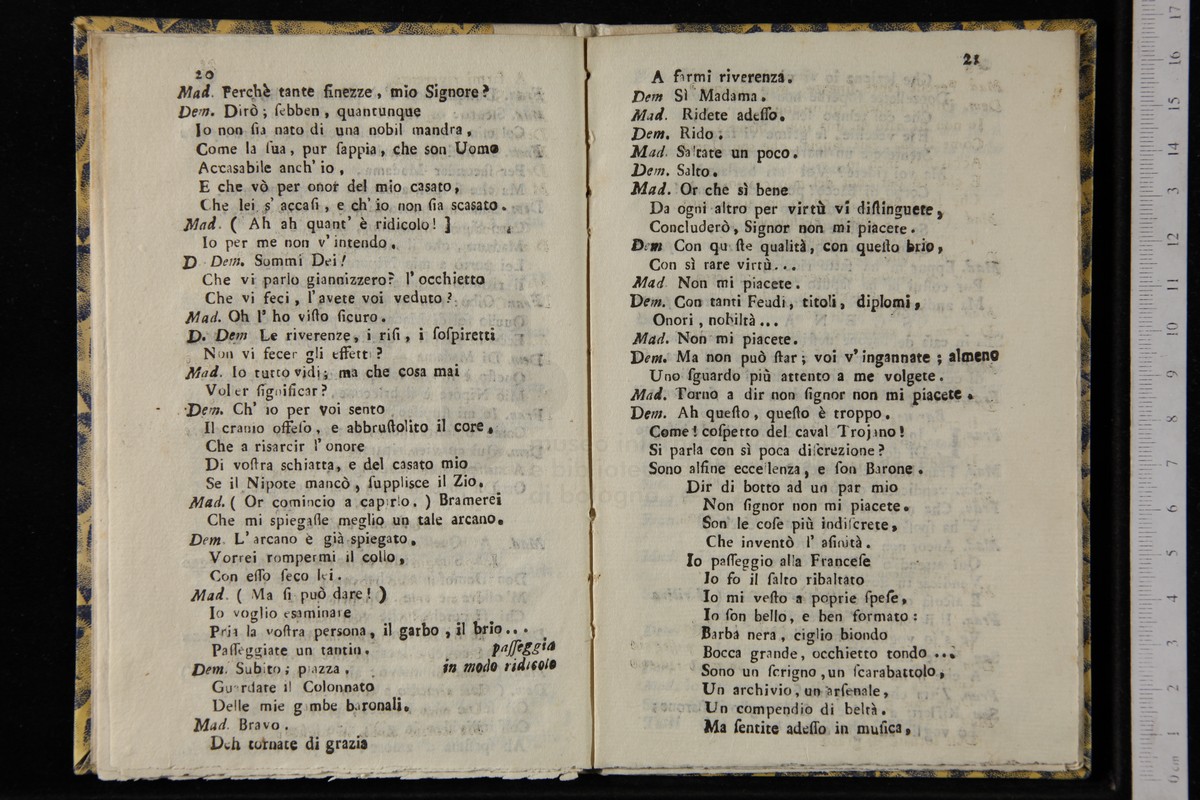 20
Mad. Perchè tante finezze, mio Signore?
Dem. Dirò; ſebben, quantunque
Io non ſia nato di una nobil mandra,
Come la ſua, pur ſappia, che son Uomo
Accasabile anch' io,
E che vò per onor del mio casato,
Che lei s' accaſi, e ch' io non ſia scasato.
Mad. ( Ah ah quant' è ridicolo! ]
Io per me non v' intendo.
D Dem. Sommi Dei!
Che vi parlo giannizzero? l' occhietto
Che vi feci, l' avete voi veduto?
Mad. Oh l' ho viſto ſicuro.
D. Dem Le riverenze, i riſi, i ſoſpiretti
Non vi fecer gli effetti?
Mad. Io tutto vidi; ma che cosa mai
Voler ſignificar?
Dem. Ch' io per voi sento
Il cranio offeſo, e abbruſtolito il core,
Che a risarcir l' onore
Di voſtra schiatta, e del casato mio
Se il Nipote mancò, ſupplisce il Zio.
Mad. ( Or comincio a capirlo. ) Bramerei
Che mi spiegaſſe meglio un tale arcano.
Dem. L' arcano è già spiegato.
Vorrei rompermi il collo,
Con eſſo ſeco lei.
Mad. ( Ma ſi può dare! )
Io voglio esaminare
Pria la voſtra persona, il garbo, il brio...
Paſſeggiate un tantin. paſſeggia
Dem. Subito; piazza. in modo ridicolo
Guardate il Colonnato
Delle mie gambe baronali.
Mad. Bravo.
Deh tornate di grazia
21
A farmi riverenza.
Dem Sì Madama.
Mad. Ridete adeſſo.
Dem. Rido.
Mad. Saltate un poco.
Dem. Salto.
Mad. Or che sì bene
Da ogni altro per virtù vi diſtinguete,
Concluderò, Signor non mi piacete.
Dem Con qu ſte qualità, con queſto brio,
Con sì rare virtù...
Mad. Non mi piacete.
Dem. Con tanti Feudi, titoli, diplomi,
Onori, nobiltà...
Mad. Non mi piacete.
Dem. Ma non può ſtar; voi v' ingannate; almeno
Uno ſguardo più attento a me volgete.
Mad. Torno a dir non ſignor non mi piacete.
Dem. Ah queſto, queſto è troppo.
Come! coſpetto del caval Trojano!
Si parla con sì poca diſcrezione?
Sono alfine eccellenza, e ſon Barone.
Dir di botto ad un par mio
Non ſignor non mi piacete.
Son' le coſe più indiſcrete,
Che inventò l' aſinità.
Io paſſeggio alla Franceſe
Io fo il ſalto ribaltato
Io mi veſto a poprie ſpeſe,
Io ſon bello, e ben formato:
Barba nera, ciglio biondo
Bocca grande, occhietto tondo ...
Sono un ſcrigno, un ſcarabattolo,
Un archivio, un arſenale,
Un compendio di beltà.
Ma ſentite adeſſo in muſica,